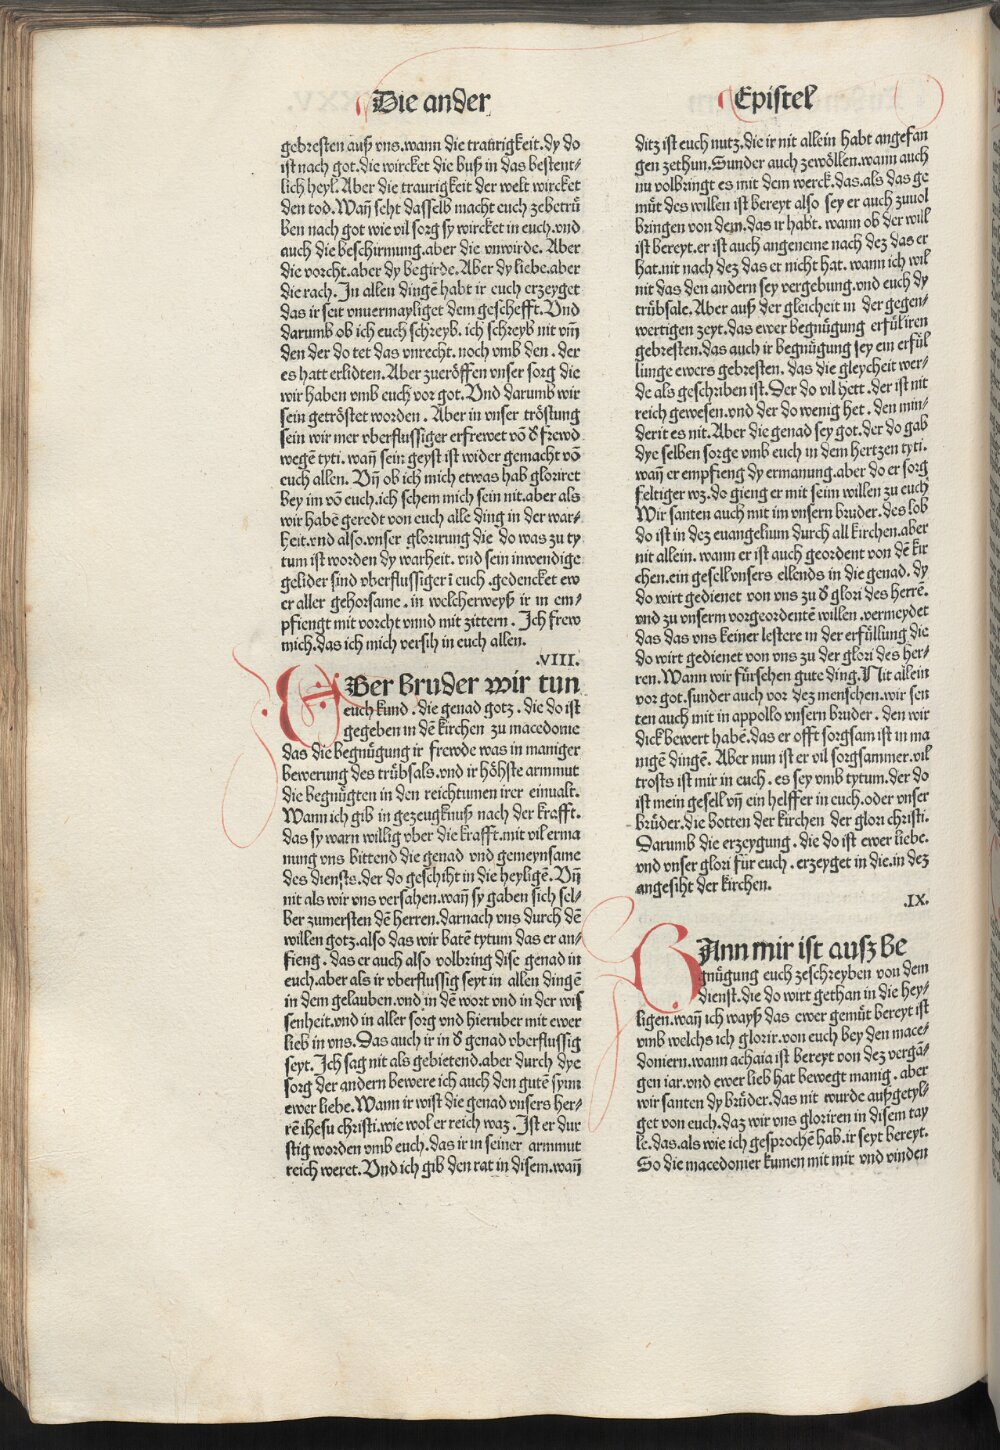 Die ander
Epistel
gebresten auß vns.wann die traurigkeit.dy do
ist nach got.die wircket die buß in das bestent⸗
lich heyl. Aber die traurigkeit der welt wircket
den tod.Wañ seht dasselb macht euch zebetrů
ben nach got wie vil sorg sy wircket in euch.vnd
auch die beschirmung.aber die vnwirde. Aber
die vorcht.aber dy begirde.Aber dy liebe.aber
die rach. In allen dingē habt ir euch erzeyget
das ir seit vnuermayliget dem geschefft. Vnd
darumb ob ich euch schreyb. ich schreyb nit vm̄
den der do tet das vnrecht. noch vmb den . der
es hatt erlidten. Aber zueröffen vnser sorg die
wir haben vmb euch vor got. Vnd darumb wir
sein getröstet worden . Aber in vnser tröstung
sein wir mer vberflussiger erfrewet vō d̕ frewd
wegē tyti. wañ sein geyst ist wider gemacht vō
euch allen. Vñ ob ich mich etwas hab gloriret
bey im vō euch.ich schem mich sein nit.aber als
wir habē geredt von euch alle ding in der war⸗
heit.vnd also.vnser glorirung die do was zu ty
tum ist worden dy warheit. vnd sein inwendige
gelider sind vberflussiger ī euch .gedencket ew
er aller gehorsame . in welcherweyß ir in em⸗
pfiengt mit vorcht vnnd mit zittern . Ich frew
mich.das ich mich versih in euch allen.
.VIII.
Ber Bruder wir tun
euch kund . die genad gotz . die do ist
gegeben in dē kirchen zu macedonie
das die begnůgung ir frewde was in maniger
bewerung des trůbsals.vnd ir höhste armmut
die begnůgten in den reichtumen irer einualt.
Wann ich gib in gezeugknuß nach der krafft.
das sy warn willig vber die krafft.mit vil erma
nung vns bittend die genad vnd gemeynsame
des diensts.der do geschiht in die heyligē. Vñ
nit als wir vns versahen.wañ sy gaben sich sel⸗
ber zumersten dē herren.darnach vns durch dē
willen gotz.also das wir batē tytum das er an⸗
fieng . das er auch also volbring dise genad in
euch.aber als ir vberflussig seyt in allen dingē
in dem gelauben.vnd in dē wort vnd in der wis
senheit.vnd in aller sorg vnd hieruber mit ewer
lieb in vns. Das auch ir in d̕ genad vberflussig
seyt. Ich sag nit als gebietend.aber durch dye
sorg der andern bewere ich auch den gutē synn
ewer liebe. Wann ir wist die genad vnsers her⸗
rē ihesu christi.wie wol er reich waz . Ist er dur
stig worden vmb euch.das ir in seiner armmut
reich weret. Vnd ich gib den rat in disem.wañ
ditz ist euch nutz.die ir nit allein habt angefan
gen zethun.Sunder auch zewöllen.wann auch
nu volbringt es mit dem werck.das.als das ge
můt des willen ist bereyt also sey er auch zuuol
bringen von dem.das ir habt. wann ob der will
ist bereyt.er ist auch angeneme nach dez das er
hat.nit nach dez das er nicht hat. wann ich wil
nit das den andern sey vergebung.vnd euch dy
trůbsale. Aber auß der gleicheit in der gegen⸗
wertigen zeyt.das ewer begnůgung erfůl iren
gebresten.das auch ir begnůgung sey ein erfůl
lunge ewers gebresten. das die gleycheit wer⸗
de als geschriben ist. Der do vil hett .der ist nit
reich gewesen.vnd der do wenig het . den min⸗
derit es nit. Aber die genad sey got.der do gab
dye selben sorge vmb euch in dem hertzen tyti.
wañ er empfieng dy ermanung.aber do er sorg
feltiger wz.do gieng er mit seim willen zu euch
Wir santen auch mit im vnsern bruder.des lob
do ist in dez euangelium durch all kirchen.aber
nit allein. wann er ist auch geordent von dē kir
chen.ein gesell vnsers ellends in die genad. dy
do wirt gedienet von vns zu d̕ glori des herrē.
vnd zu vnserm vorgeordentē willen .vermeydet
das das vns keiner lestere in der erfüllung die
do wirt gedienet von vns zu der glori des her⸗
ren. Wann wir fürsehen gute ding. Nit allein
vor got.sunder auch vor dez menschen.wir sen
ten auch mit in appollo vnsern bruder. den wir
dick bewert habē.das er offt sorgsam ist in ma
nigē dingē. Aber nun ist er vil sorgsammer.vil
trosts ist mir in euch . es sey vmb tytum.der do
ist mein gesell vñ ein helffer in euch.oder vnser
brůder.die botten der kirchen der glori christi.
Darumb die erzeygung . die do ist ewer liebe.
vnd vnser glori für euch . erzeyget in die.in dez
angesiht der kirchen.
.IX.
Ann mir ist ausz be
gnůgung euch zeschreyben von dem
dienst.die do wirt gethan in die hey⸗
ligen.wañ ich wayß das ewer gemůt bereyt ist
vmb welchs ich glorir.von euch bey den mace⸗
doniern.wann achaia ist bereyt von dez vergā⸗
gen iar.vnd ewer lieb hat bewegt manig . aber
wir santen dy brůder.das nit wurde außgetyl⸗
get von euch.daz wir vns gloriren in disem tay
le.das.als wie ich gesprochē hab.ir seyt bereyt.
So die macedonier kumen mit mir vnd vinden